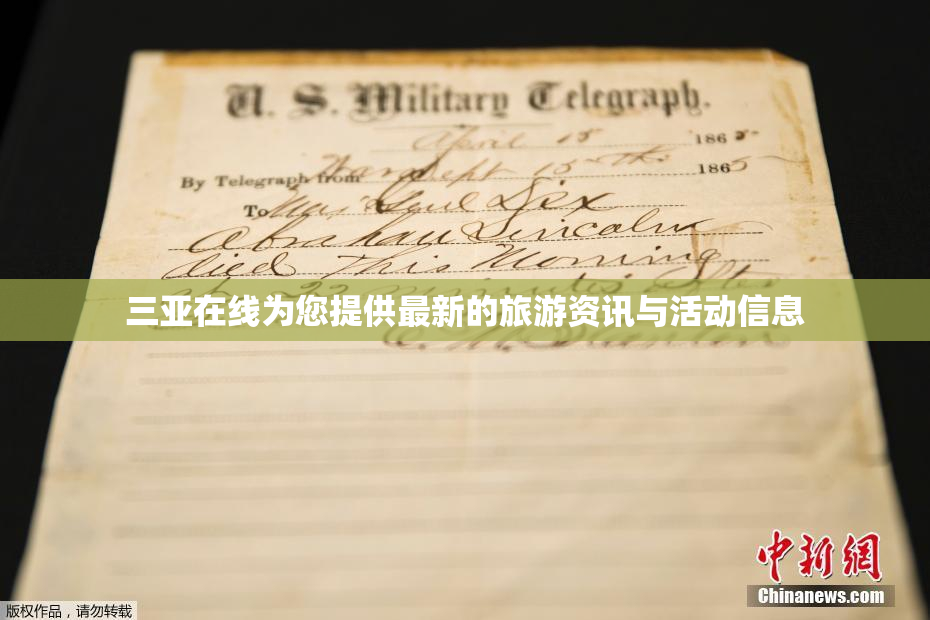 U. S. Military Telegraph.
April 15 1865.
By Telegraph from War Dept 15th 1865
To Maj Genl Dix
Abraham Lincoln
died This Morning
at 22 minutes after
三亚在线为您提供最新的旅游资讯与活动信息
E. M. Stanton
中新网
Chinanews.com
版权作品，请勿转载